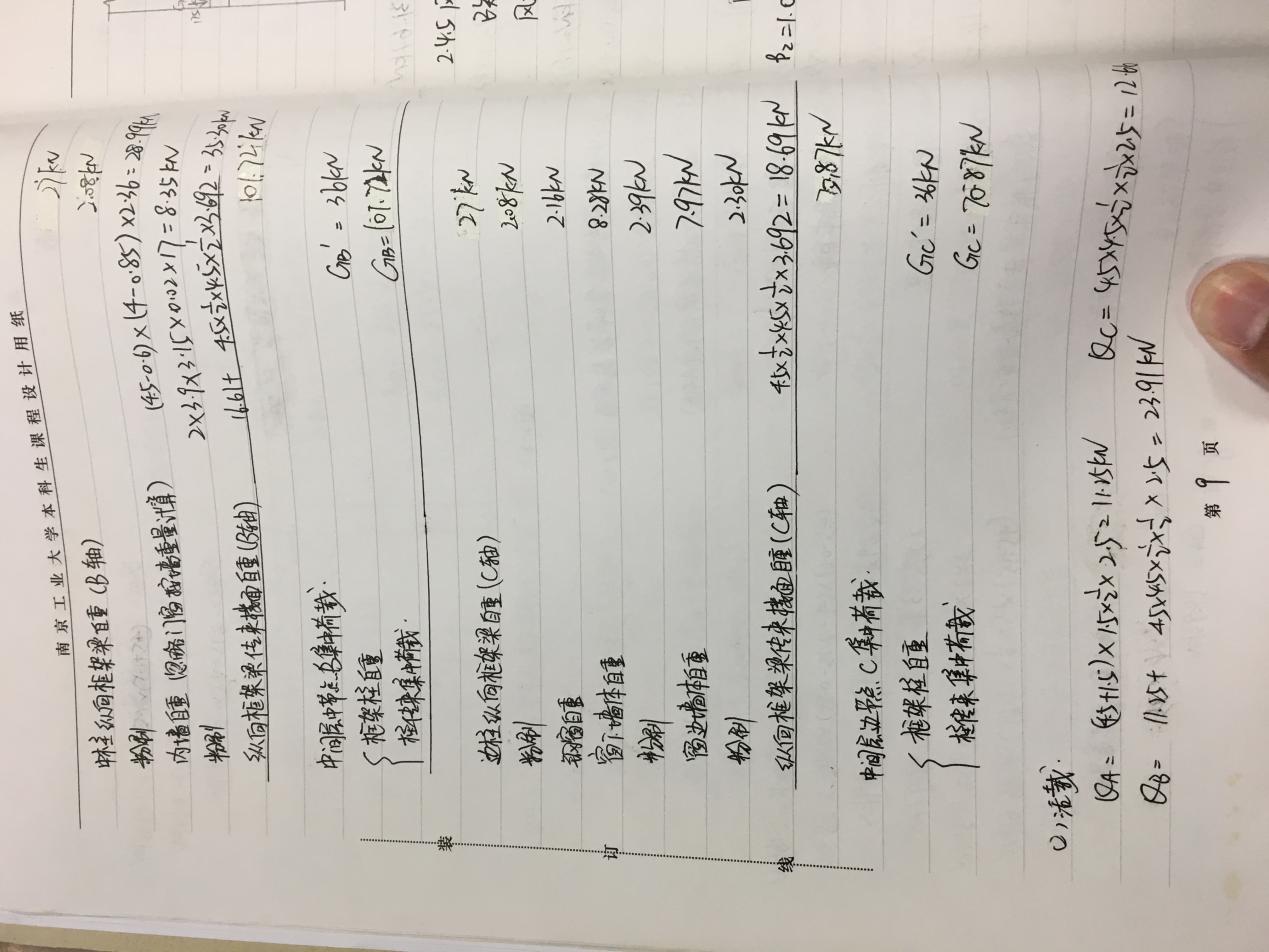 南京工业大学本科生课程设计用纸
中柱纵向框架梁自重（B轴） 27kN
粉刷 2.08kN
内墙自重（忽略门窗按墙重量计算） (4.5-0.6)×(4-0.85)×2.36=28.99kN
粉刷 2×3.9×3.15×0.02×17=8.35kN
纵向框架梁传来楼面自重(B轴) 16.61+ 4.5×½×4.5×½×3.692=35.30kN
101.72kN
中间层中节点B集中荷载.
框架柱自重 GB'=36kN
柱传来集中荷载. GB=101.72kN
边柱纵向框架梁自重(C轴) 27kN
粉刷 2.08kN
钢窗自重 2.16kN
窗下墙体自重 8.28kN
粉刷 2.39kN
窗边墙体自重 7.97kN
粉刷 2.30kN
纵向框架梁传来楼面自重(C轴) 4.5×½×4.5×½×3.692=18.69kN
70.87kN
中间层边节点C集中荷载.
框架柱自重 GC'=36kN
柱传来集中荷载 GC=70.87kN
(2)活载.
QA= (4.5+1.5)×1.5×½×2.5=11.25kN QC=4.5×4.5×½×½×2.5=12.66
QB= 11.25+ 4.5×4.5×½×½×2.5=23.91kN
第 9 页
装
订
线
2.4.5
风
βz=1.0